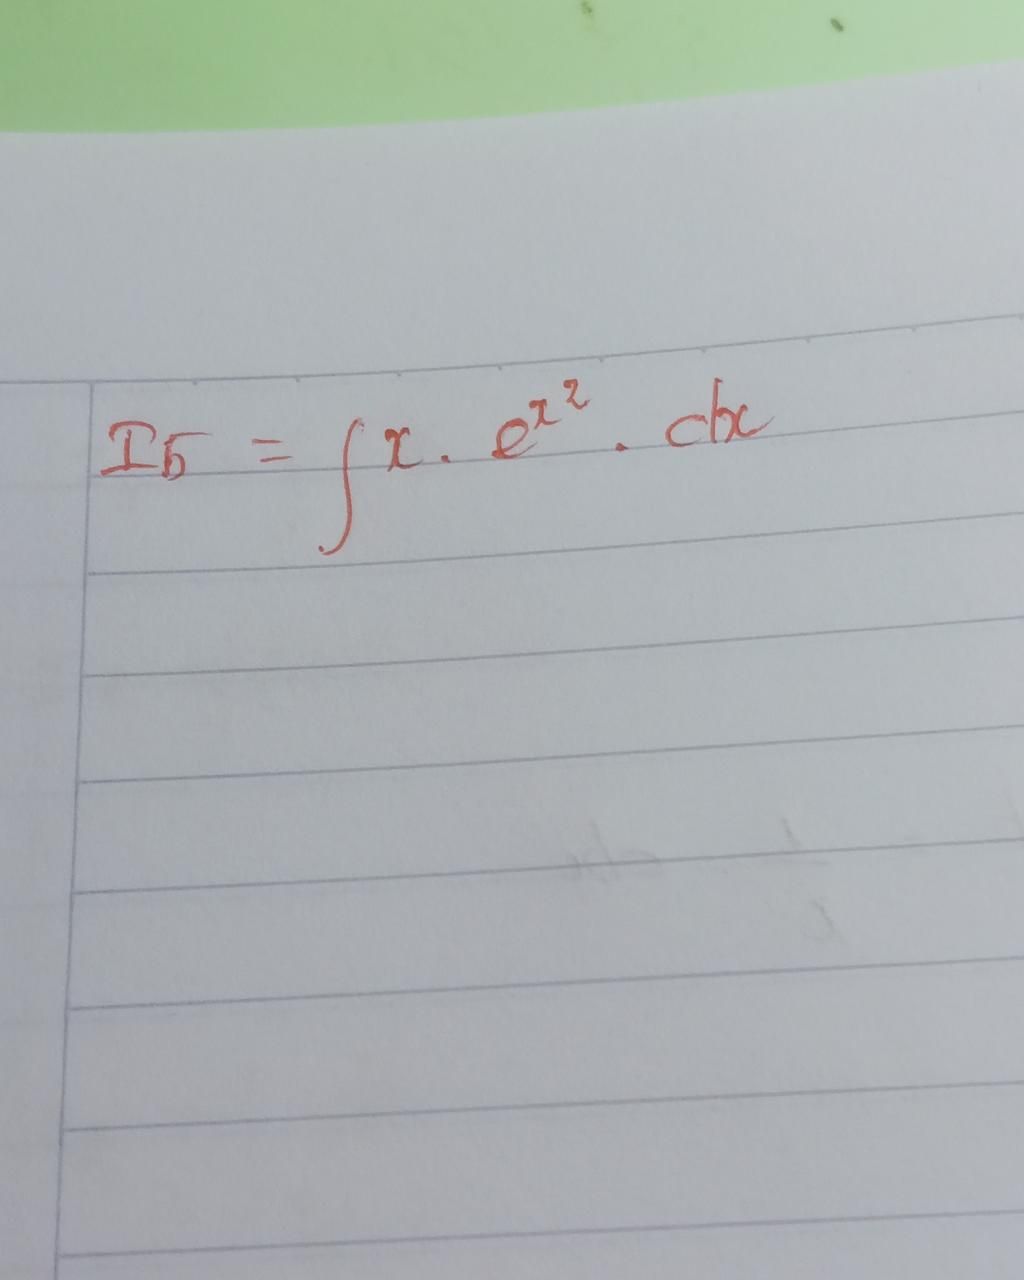 I5 = ∫ x . e^{x^2} . dx